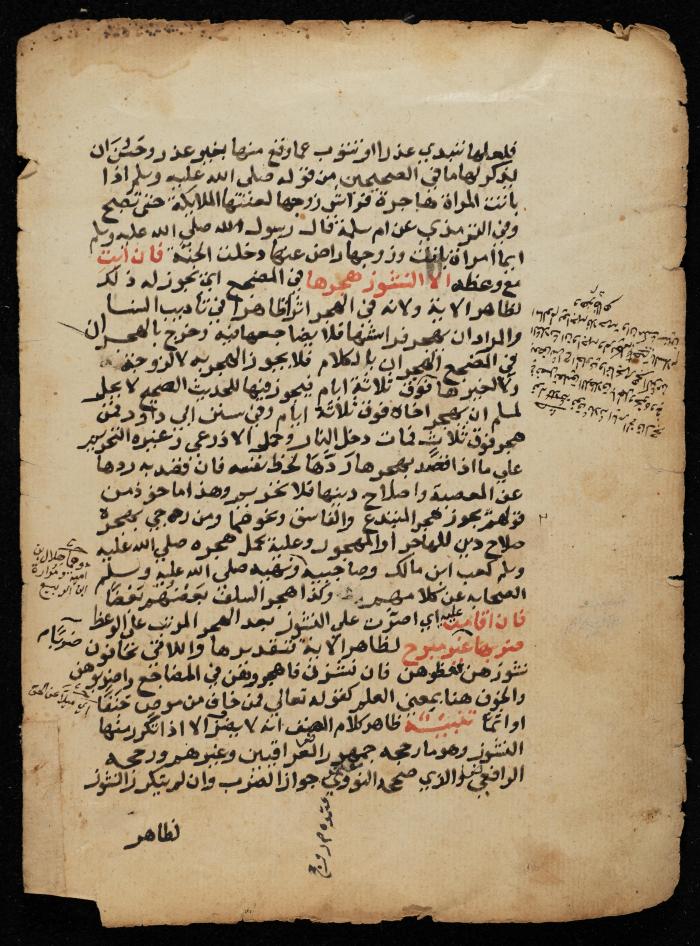 فلعلها تبدي عذرا او تتوب عما وقع منها بغير عذر وحسن ان
يذكر لها ما في الصحيحين من قوله صلى الله عليه وسلم اذا
باتت المراة هاجرة فراش زوجها لعنتها الملايكة حتى تصبح
وفي الترمذي عن ام سلمة قال رسول الله صلى الله عليه وسلم
ايما امراة باتت وزوجها راض عنها دخلت الجنة فان ابت
مع وعظه الا النشوز هجرها في المضجع اي يجوز له ذلك
لظاهر الاية ولان في الهجر اثرا ظاهرا في تاديب النسا
والمراد ان يهجر فراشها فلا يضاجعها فيه وخرج بالهجران
في المضجع الهجران بالكلام فلا يجوز الهجر به لا للزوجة
ولا لغيرها فوق ثلاثة ايام ويجوز فيها للحديث الصحيح لا يحل
لمسلم ان يهجر اخاه فوق ثلاثة ايام وفي سنن ابي داود فمن
هجر فوق ثلاث فمات دخل النار وحمل الاذرعي وغيره التحريم
على ما اذا قصد بهجرها ردها لحظ نفسه فان قصد به ردها
عن المعصية واصلاح دينها فلا تحريم وهذا ماخوذ من
قولهم يجوز هجر المبتدع والفاسق ونحوهما ومن رجي بهجره
صلاح دين للهاجر او المهجور وعليه يحمل هجره صلى الله عليه
وسلم كعب ابن مالك وصاحبيه ونهيه صلى الله عليه وسلم
الصحابة عن كلامهم وكذا هجر السلف بعضهم بعضا
فان اقامت عليه اي اصرت على النشوز بعد الهجر المرتب على الوعظ
ضربها غير مبرح لظاهر الاية فتقديرها واللاتي تخافون
نشوزهن فعظوهن فان نشزن فاهجروهن في المضاجع واضربوهن
والخوف هنا بمعنى العلم كقوله تعالى فمن خاف من موص جنفا
او اثما تنبيه ظاهر كلام المصنف انه لا يضرب الا اذا تكرر منها
النشوز وهو ما رجحه جمهور العراقيين وغيرهم ورجحه
الرافعي والذي صححه النووي جواز الضرب وان لم يتكرر النشوز
لظاهر
وهما هلال بن
امية ومرارة
ابن الربيع